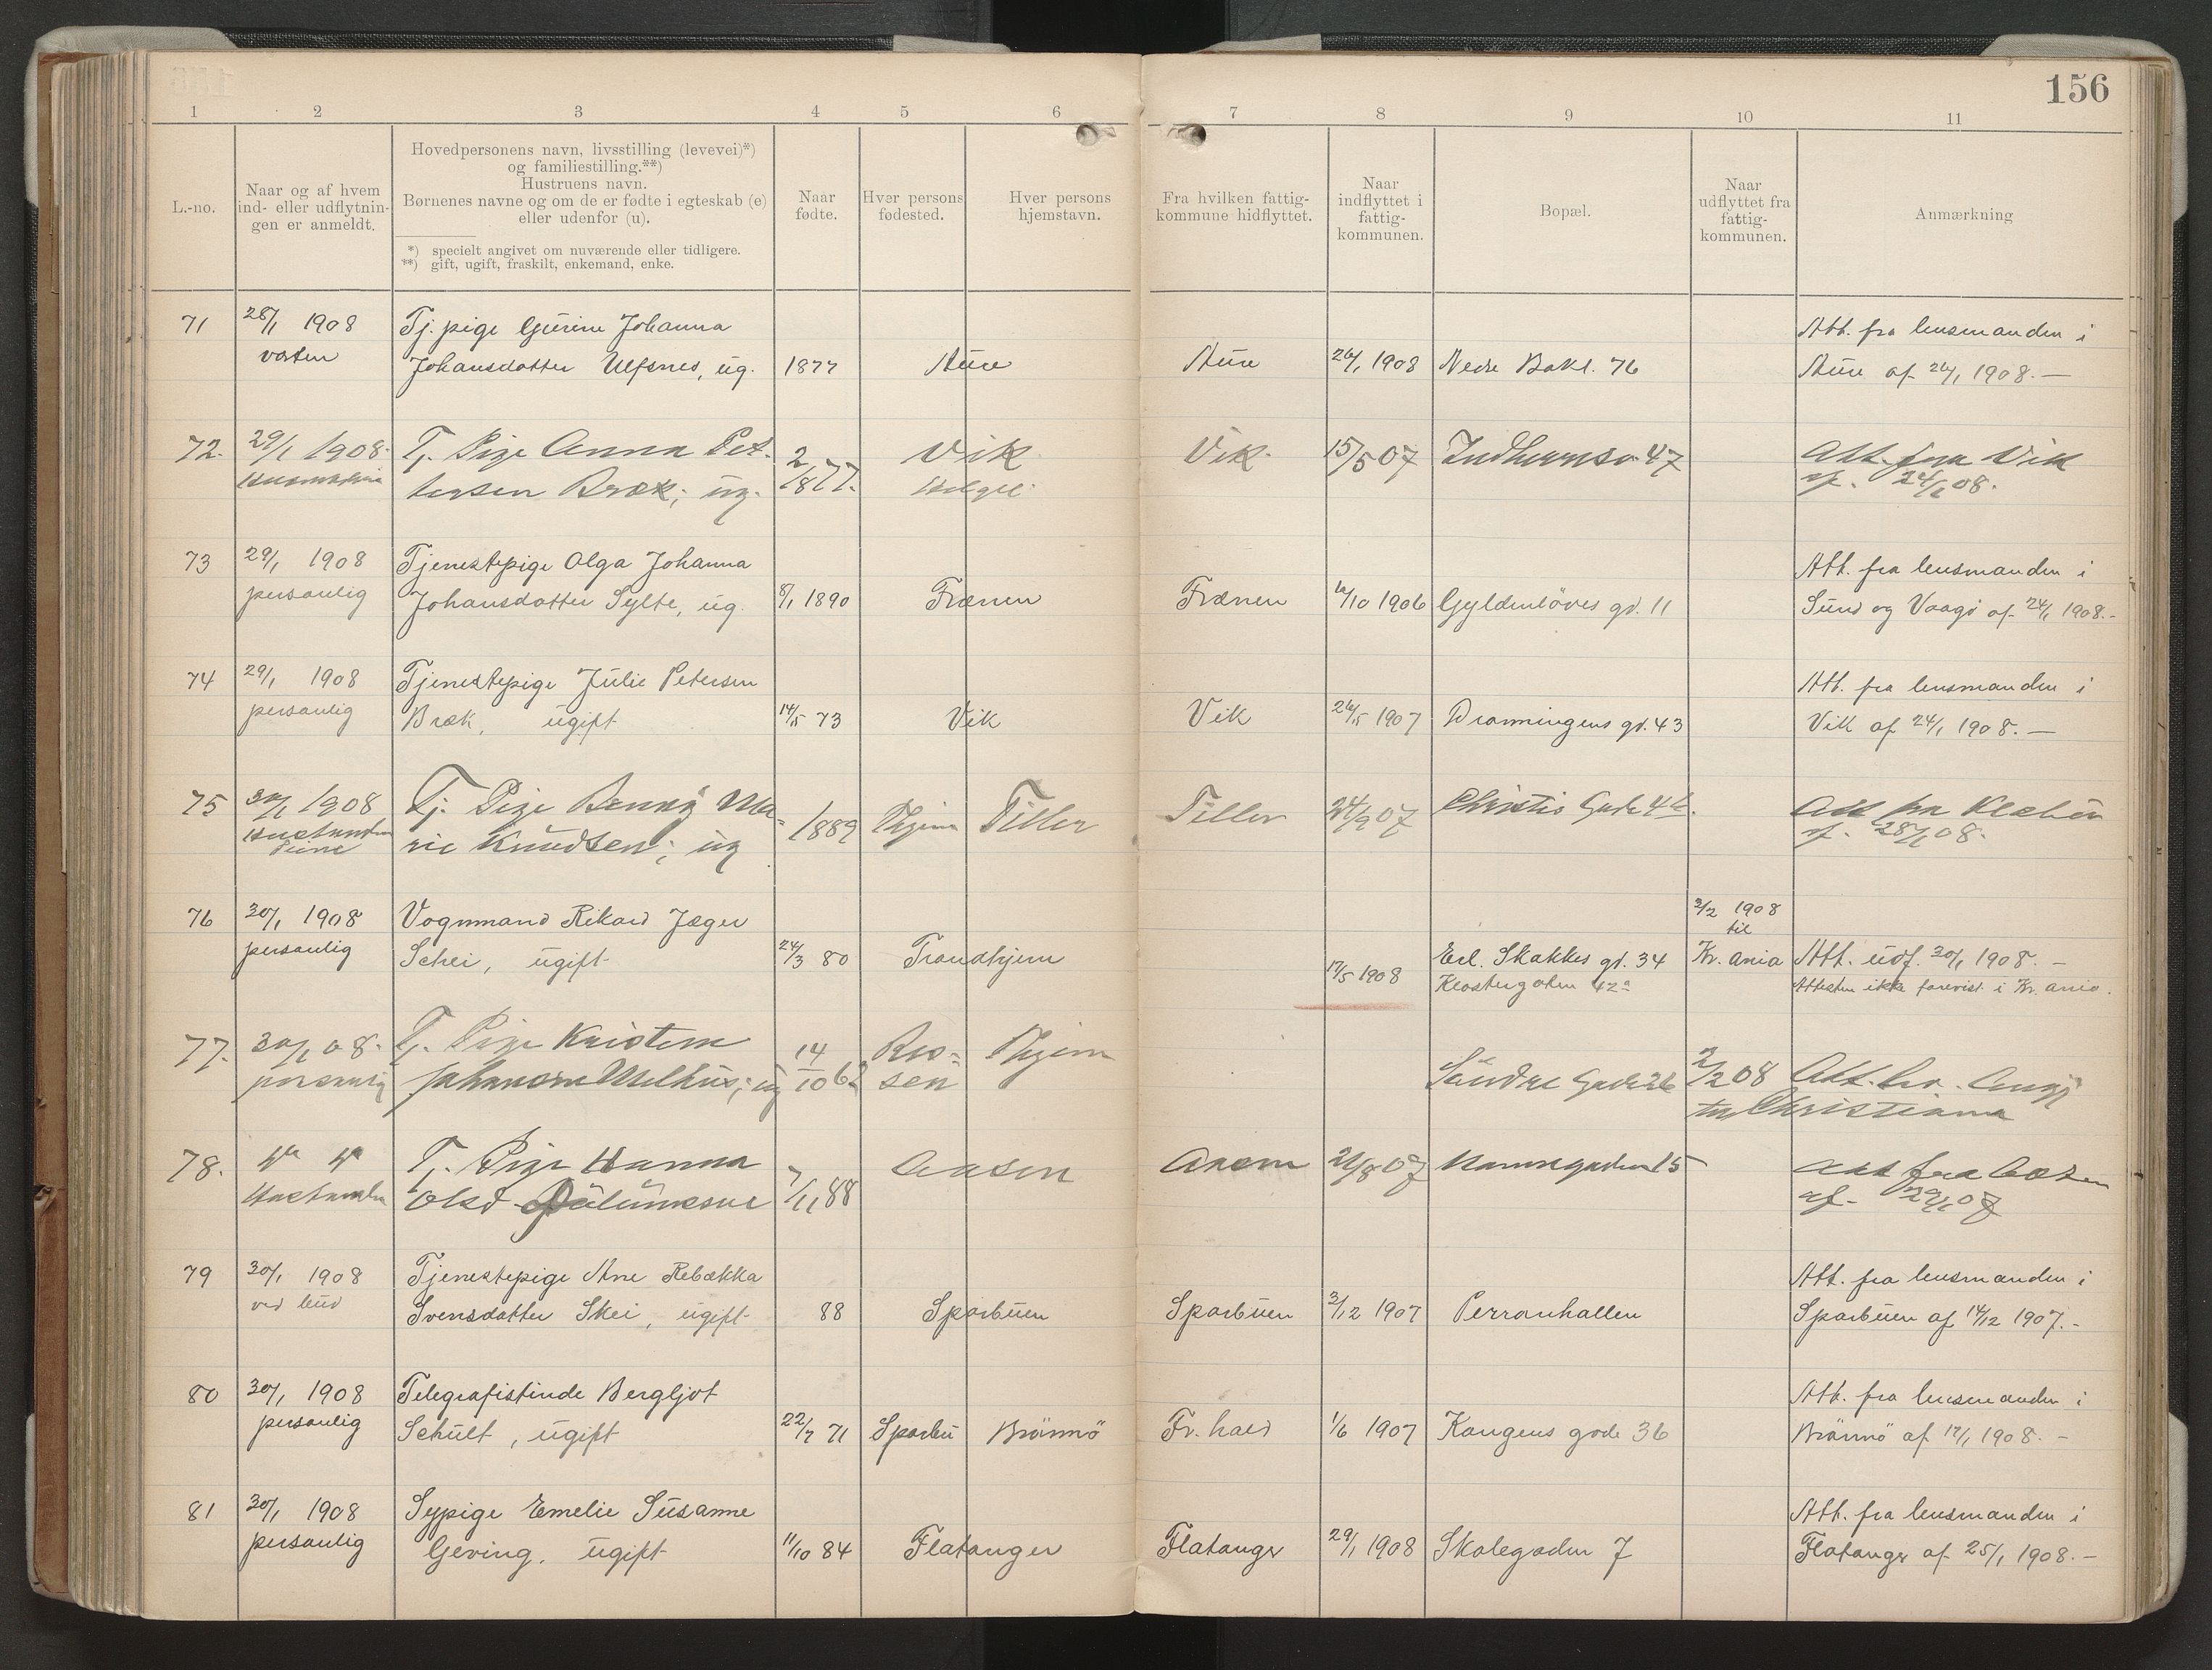 156
1 2 3 4 5 6 7 8 9 10 11
L.-no.
Naar og af hvem
ind- eller udflytnin-
gen er anmeldt.
Hovedpersonens navn, livsstilling (levevei)*)
og familiestilling.**)
Hustruens navn.
Børnenes navne og om de er fødte i egteskab (e)
eller udenfor (u).
*) specielt angivet om nuværende eller tidligere.
**) gift, ugift, fraskilt, enkemand, enke.
Naar
fødte.
Hver persons
fødested.
Hver persons
hjemstavn.
Fra hvilken fattig-
kommune hidflyttet.
Naar
indflyttet i
fattig-
kommunen.
Bopæl.
Naar
udflyttet fra
fattig-
kommunen.
Anmærkning
71 28/1 1908 Tj. pige Gurine Johanna Att. fra lensmanden i
Johansdatter Ulfsnes, ug. 1877 Aure Aure 26/1 1908 Nedre Bakl. 76 Aure af 26/1 1908. —
72. 29/1 1908. Tj. Pige Anna Pet- 2 Vik Vik 15/5 07 47 Att. fra Vik
tersen Bræk; ug. 1877. Helgel. af. 24/1 08.
73 29/1 1908 Tjenestepige Olga Johanna Att. fra lensmanden i
personlig Johansdatter Sylte, ug. 8/1 1890 Frænen Frænen 10 1906 Gyldenløves gd. 11 Sund og Vaagø af 24/1 1908. -
74 29/1 1908 Tjenestepige Julie Petersen Att. fra lensmanden i
personlig Bræk, ugift 14/5 73 Vik Vik 26/5 1907 Dronningens gd. 43 Vik af 24/1 1908. —
75 30/1 1908 Tj. Pige Benny Ma- 1889 Thjem Tiller Tiller 24/9 07 Christis Gade 4b. Att fra Klæbu
rie Knudsen; ug af. 28/1 08.
76 30/1 1908 Vognmand Rikard Jæger 3/2 1908
til
personlig Schei, ugift 24/3 80 Trondhjem 17/5 1908 Erl. Skakkes gd. 34 Kr. ania Att. udf. 30/1 1908. -
Klostergaten 42a Attesten ikke forevist i Kr. ania.
77. 30/1 08. Tj. Pige Kristine 14 Ris- Thjem
personlig Johansen Melhus; ug 10 62 sen Søndre Gade 26 3/2 08 Att.
til Christiania
78. Tj. Pige Hanna 7 Aasen Aasen 21/8 07 15 Att fra Aasen
Olsd 11 88 af - 29/1 07
79 30/1 1908 Tjenestepige Ane Rebækka Att. fra lensmanden i
ved bud Svensdatter Skei, ugift 88 Sparbuen Sparbuen 3/12 1907 Perronhallen Sparbuen af 14/12 1907. -
80 30/1 1908 Telegrafistinde Bergljot Att. fra lensmanden i
personlig Schult, ugift 22/7 71 Sparbu Brønnø Fr. hald 1/6 1907 Kongens gade 36 Brønnø af 17/1 1908. -
81 30/1 1908 Sypige Emelie Susanne Att. fra lensmanden i
personlig Geving, ugift 11/10 84 Flatanger Flatanger 29/1 1908 Skolegaden 7 Flatanger af 25/1 1908. -